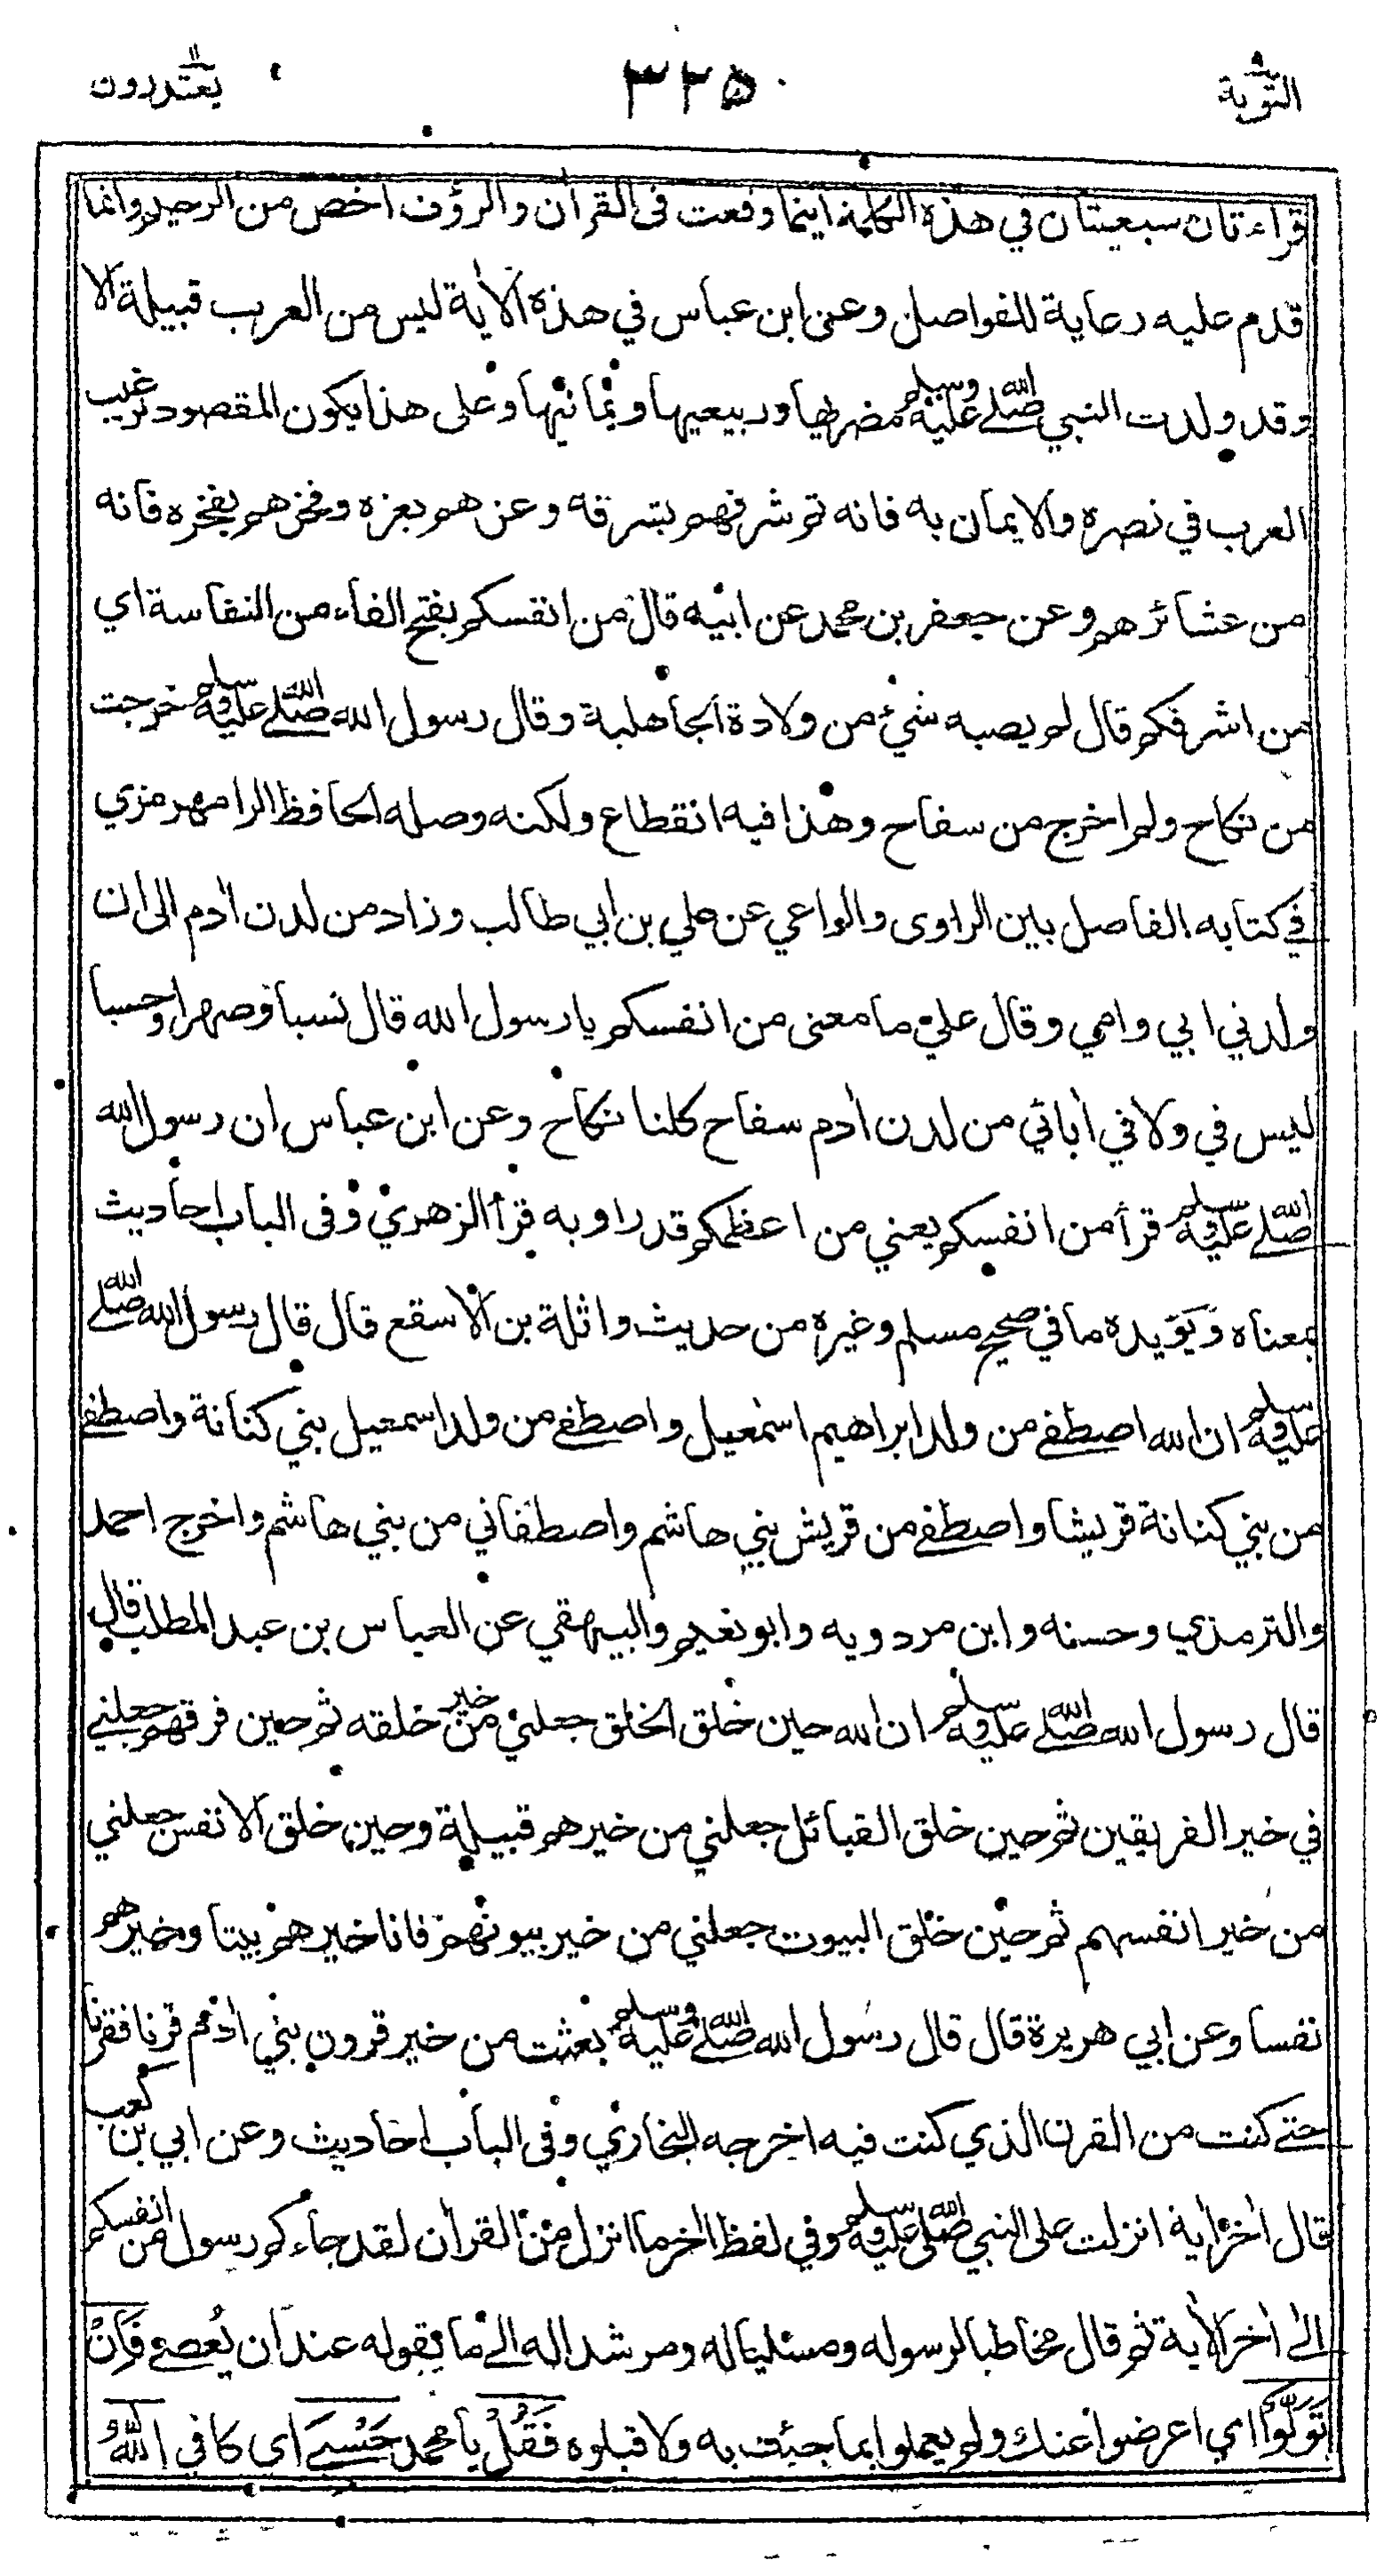 التوبة ٩
٣٢٥
يعتذرون ١١
قراءتان سبعيتان في هذه الكلمة اينما وقعت فى القرآن والرؤف اخص من الرحيم وانما
قدم عليه رعاية للفواصل وعن ابن عباس في هذه الآية ليس من العرب قبيلة الا
وقد ولدت النبي صلى الله عليه وسلم مضريها وربيعيها ويمانيها وعلى هذا يكون المقصود ترغيب
العرب في نصره والايمان به فانه تم شرفهم بشرفه وعزهم بعزه وفخرهم بفخره فانه
من عشائرهم وعن جعفر بن محمد عن ابيه قال من انفسكم بفتح الفاء من النفاسة اي
من اشرفكم قال لم يصبه شيء من ولادة الجاهلية وقال رسول الله صلى الله عليه وسلم خرجت
من نكاح ولم اخرج من سفاح وهذا فيه انقطاع ولكنه وصله الحافظ الرامهرمزي
في كتابه الفاصل بين الراوى والواعي عن علي بن ابي طالب وزاد من لدن آدم الى ان
ولدني ابي وامي وقال علي ما معنى من انفسكم يا رسول الله قال نسبا وصهرا وحسبا
ليس في ولا في آبائي من لدن آدم سفاح كلنا نكاح وعن ابن عباس ان رسول الله
صلى الله عليه وسلم قرأ من انفسكم يعني من اعظمكم قدرا وبه قرأ الزهري وفى الباب احاديث
بمعناه ويؤيده ما في صحيح مسلم وغيره من حديث واثلة بن الاسقع قال قال رسول الله صلى الله
عليه وسلم ان الله اصطفى من ولد ابراهيم اسمعيل واصطفى من ولد اسمعيل بني كنانة واصطفى
من بني كنانة قريشا واصطفى من قريش بني هاشم واصطفاني من بني هاشم واخرج احمد
والترمذي وحسنه وابن مردويه وابو نعيم والبيهقي عن العباس بن عبد المطلب قال
قال رسول الله صلى الله عليه وسلم ان الله حين خلق الخلق جعلني من خير خلقه ثم حين فرقهم جعلني
في خير الفريقين ثم حين خلق القبائل جعلني من خيرهم قبيلة وحين خلق الانفس جعلني
من خير انفسهم ثم حين خلق البيوت جعلني من خير بيوتهم فانا خيرهم بيتا وخيرهم
نفسا وعن ابي هريرة قال قال رسول الله صلى الله عليه وسلم بعثت من خير قرون بني آدم قرنا فقرنا
حتى كنت من القرن الذي كنت فيه اخرجه البخاري وفى الباب احاديث وعن ابي بن كعب
قال آخر آية انزلت على النبي صلى الله عليه وسلم وفي لفظ آخر ما انزل من القرآن لقد جاءكم رسول من انفسكم
الى آخر الآية ثم قال مخاطبا لرسوله ومسليا له ومرشدا له الى ما يقوله عند ان يُعصى فَاِنْ
تَوَلَّوْا اي اعرضوا عنك ولم يعملوا بما جئت به ولا قبلوه فَقُلْ يا محمد حَسْبِيَ اى كافي اللّٰهُ